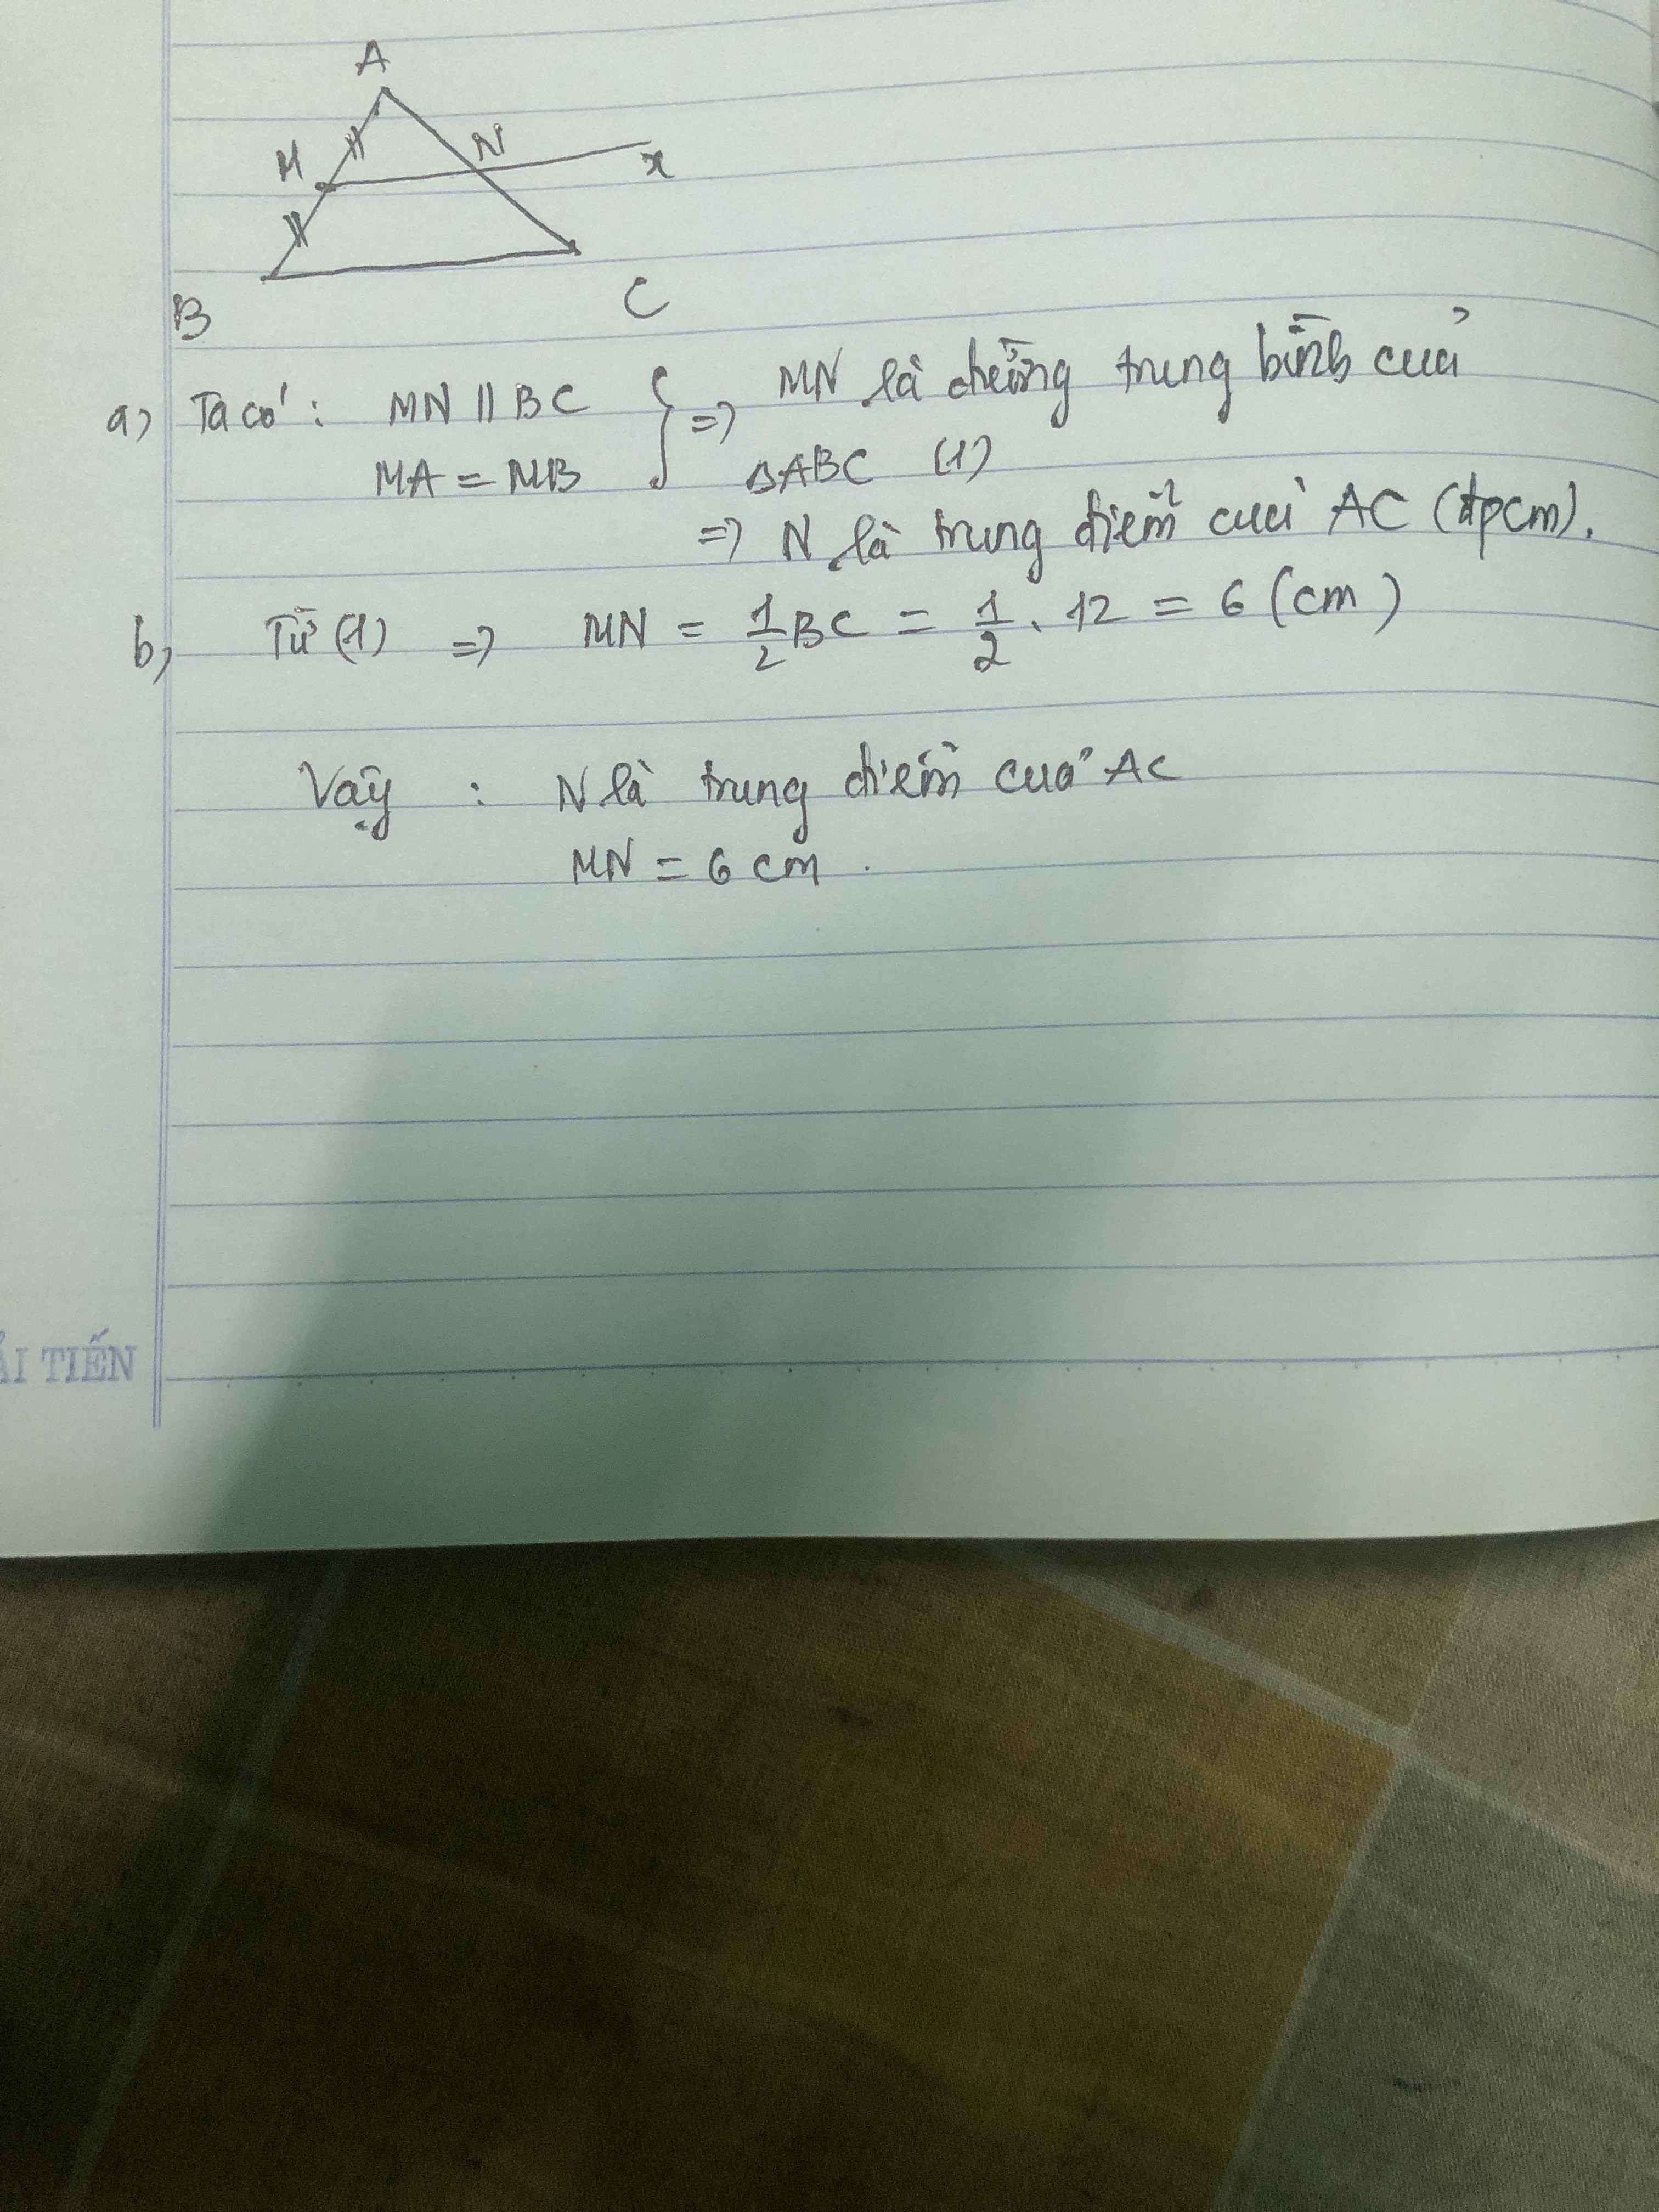 A
M
N
x
B
C
a) Ta có: MN || BC } => MN là đường trung bình của
MA = MB ΔABC (1)
=> N là trung điểm của AC (đpcm).
b, Từ (1) => MN = 1/2 BC = 1/2 . 12 = 6 (cm)
Vậy : N là trung điểm của AC
MN = 6 cm .
ẢI TIẾN